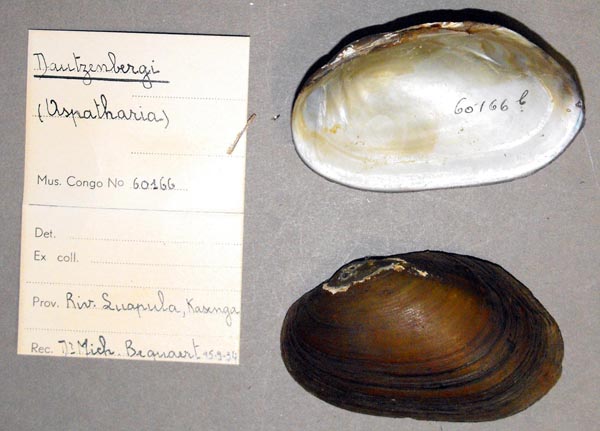 Dautzenbergi
(Aspatharia)
Mus. Congo No 60166
Det.
Ex coll.
Prov. Riv. Luapula, Kasenga
Rec. Dr Mich. Bequaert 15-9-34
60166 b